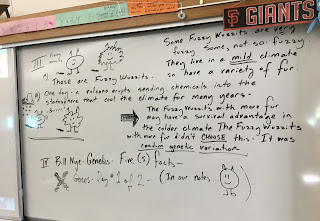 GIANTS
III Fuzzy Wuzzits
Some Fuzzy Wuzzits are very
fuzzy Some, not so fuzzy
They live in a mild climate
so have a variety of fur.
1) These are Fuzzy Wuzzits.
2) One day - a volcano erupts sending chemicals into the
stratosphere that cool the climate for many years -
The Fuzzy Wuzzits with more fur
may have a survival advantage in
the colder climate The Fuzzy Wuzzits
with more fur didn't CHOOSE this - It was
random genetic variation
IV Bill Nye - Genetics - Five (5) facts -
Genes - Day # 1 of 2 - (In our notes